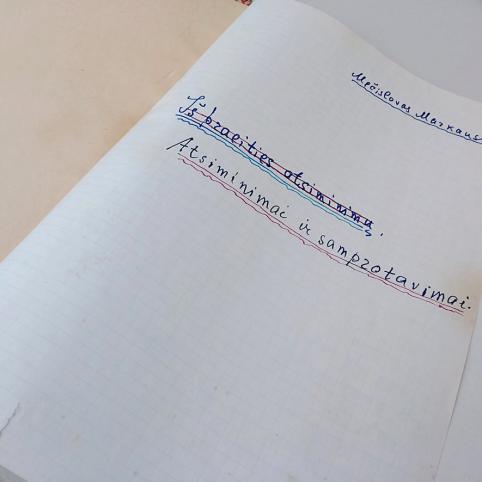 Mečislovas Markaus
Iš praeities atsiminimų.
Atsiminimai ir samprotavimai.